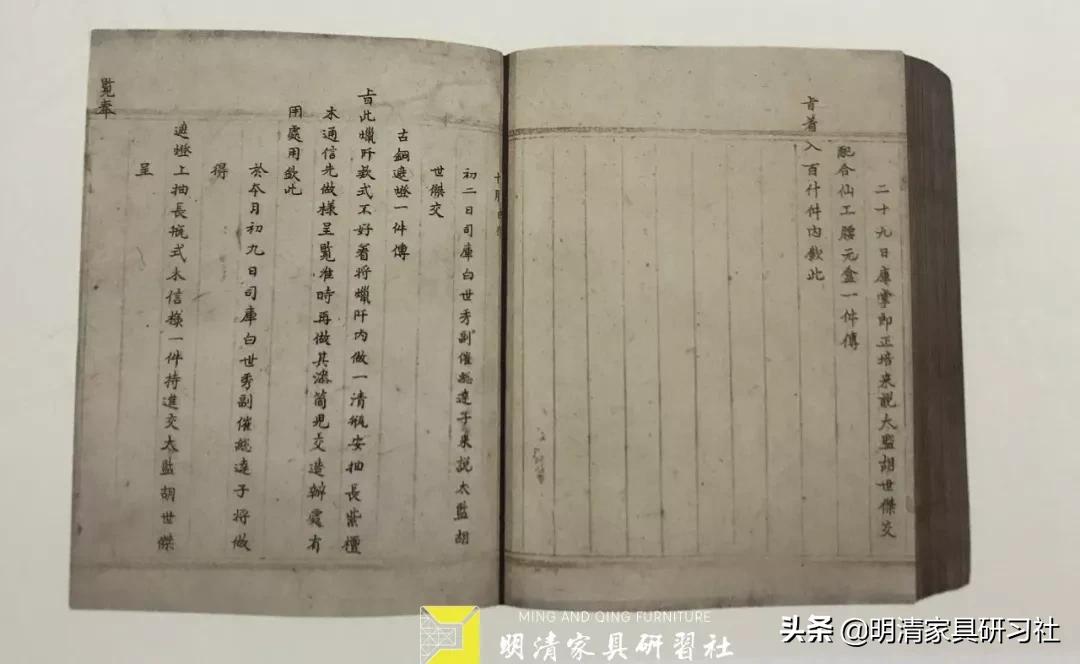 二十九日庫掌即正培來説太監胡世傑交
配合仙工腰元盒一件傳
旨着入百什件内欽此
初二日司庫白世秀副催總達子來説太監胡
世傑交
古銅遮燈一件傳
旨此蠟阡欵式不好着将蠟阡内做一清瓶安抽長紫檀
木通信先做様呈覽准時再做其滌筒児交造辦處有
用處用欽此
於本月初九日司庫白世秀副催總達子将做
得
遮燈上抽長瓶式木信様一件持進交太監胡世傑
呈
覽奉
MING AND QING FURNITURE
明清家具研習社
头条 @明清家具研习社